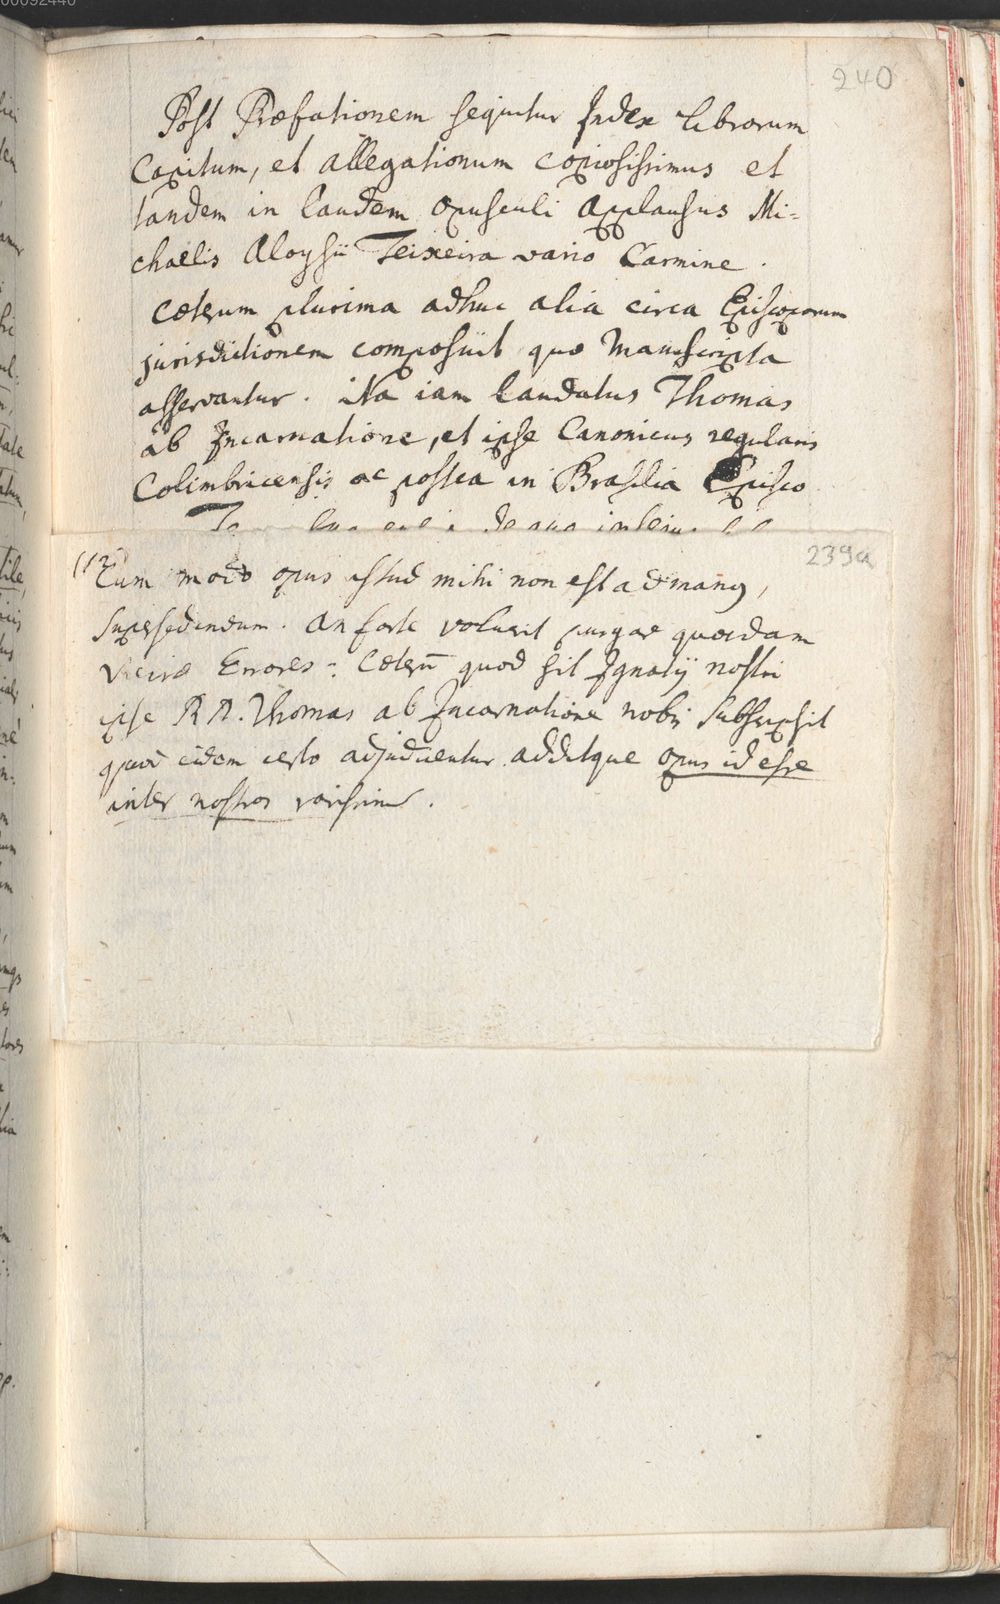 240
Post Præfationem sequitur Index librorum
Capitum, et allegationum copiosissimus et
tandem in laudem opusculi applausus Mi=
chaelis Aloysii Teixeira vario Carmine.
Cæterum plurima adhuc alia circa Episcoporum
jurisdictionem composuit quæ Manuscripta
asservantur. Ita iam laudatus Thomas
ab Incarnatione, et ipse Canonicus regularis
Colimbricensis ac postea in Brasilia Episco
239a
Cum modo opus istud mihi non est ad manus,
supersedendum. An forte voluerit purgare quædam
Vieiræ Errores: Cæterū quod sit Ignatij nostri
ipse Thomas ab Incarnatione nobis subscripsit
quod eidem certo adjudicentur additque opus id esse
inter nostros rarissimum.